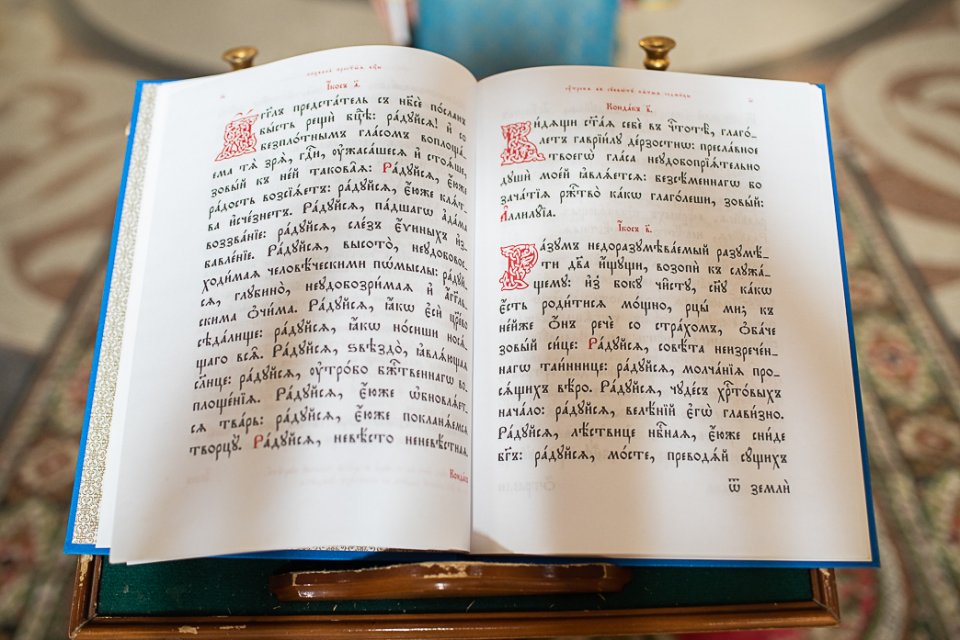 І҆́косъ а҃.
А҆́гг҃лъ предста́тель съ нб҃сѐ по́сланъ
бы́сть рещѝ бц҃ѣ: ра́дꙋйсѧ! и҆ со
безпло́тнымъ гла́сомъ воплоща́_
ема тѧ̀ зрѧ̀, гдⷭ҇и, оу҆жаса́шесѧ и҆ стоѧ́ше,
зовы́й къ не́й такова̑ѧ: Ра́дꙋйсѧ, є҆́юже
ра́дость возсїѧ́етъ: ра́дꙋйсѧ, є҆́юже клѧ́т_
ва и҆сче́знетъ. Ра́дꙋйсѧ, па́дшагѡ а҆да́ма
воззва́нїе: ра́дꙋйсѧ, сле́зъ є҆́ѵиныхъ и҆з_
бавле́нїе. Ра́дꙋйсѧ, высото̀, неꙋдобовос_
ходи́маѧ человѣ́ческими по́мыслы: ра́дꙋй_
сѧ, глꙋбино̀, неꙋдобозри́маѧ и҆ а҆́гг҃ль_
скима ѻ҆чи́ма. Ра́дꙋйсѧ, ꙗ҆́кѡ є҆сѝ цр҃е́во
сѣда́лище: ра́дꙋйсѧ, ꙗ҆́кѡ но́сиши носѧ́_
щаго всѧ̑. Ра́дꙋйсѧ, ѕвѣздо̀, ꙗ҆влѧ́ющаѧ
сл҃нце: ра́дꙋйсѧ, оу҆тро́бо бжⷭ҇твеннагѡ во_
площе́нїѧ. Ра́дꙋйсѧ, є҆́юже ѡ҆бновлѧ́ет_
сѧ тва́рь: ра́дꙋйсѧ, є҆́юже покланѧ́емсѧ
творцꙋ̀. Ра́дꙋйсѧ, невѣ́сто неневѣ́стнаѧ.
Конда́къ
Конда́къ в҃.
Ви́дѧщи ст҃а́ѧ себѐ въ чⷭ҇тотѣ̀, глаго́_
летъ гаврїи́лꙋ де́рзостнѡ: пресла́вное
твоегѡ̀ гла́са неꙋдобопрїѧ́тельно
дꙋшѝ мое́й ꙗ҆влѧ́етсѧ: безсѣ́меннагѡ бо
зача́тїѧ ржⷭ҇тво̀ ка́кѡ глаго́леши, зовы́й:
А҆ллилꙋ́їа.
І҆́косъ в҃.
Ра́зꙋмъ недоразꙋмѣва́емый разꙋмѣ́_
ти дв҃а и҆́щꙋщи, возопѝ къ слꙋжа́_
щемꙋ: и҆з̾ бокꙋ̀ чи́стꙋ, сн҃ꙋ ка́кѡ
є҆́сть роди́тисѧ мо́щно, рцы́ ми; къ
не́йже ѻ҆́нъ речѐ со стра́хомъ, ѻ҆ба́че
зовы́й си́це: Ра́дꙋйсѧ, совѣ́та неизрече́н_
нагѡ таи́ннице: ра́дꙋйсѧ, молча́нїѧ про_
сѧ́щихъ вѣ́ро. Ра́дꙋйсѧ, чꙋде́съ хрⷭ҇то́выхъ
нача́ло: ра́дꙋйсѧ, велѣ́нїй є҆гѡ̀ глави́зно.
Ра́дꙋйсѧ, лѣ́ствице нбⷭ҇наѧ, є҆́юже сни́де
бг҃ъ: ра́дꙋйсѧ, мо́сте, преводѧ́й сꙋ́щихъ
ѿ землѝ